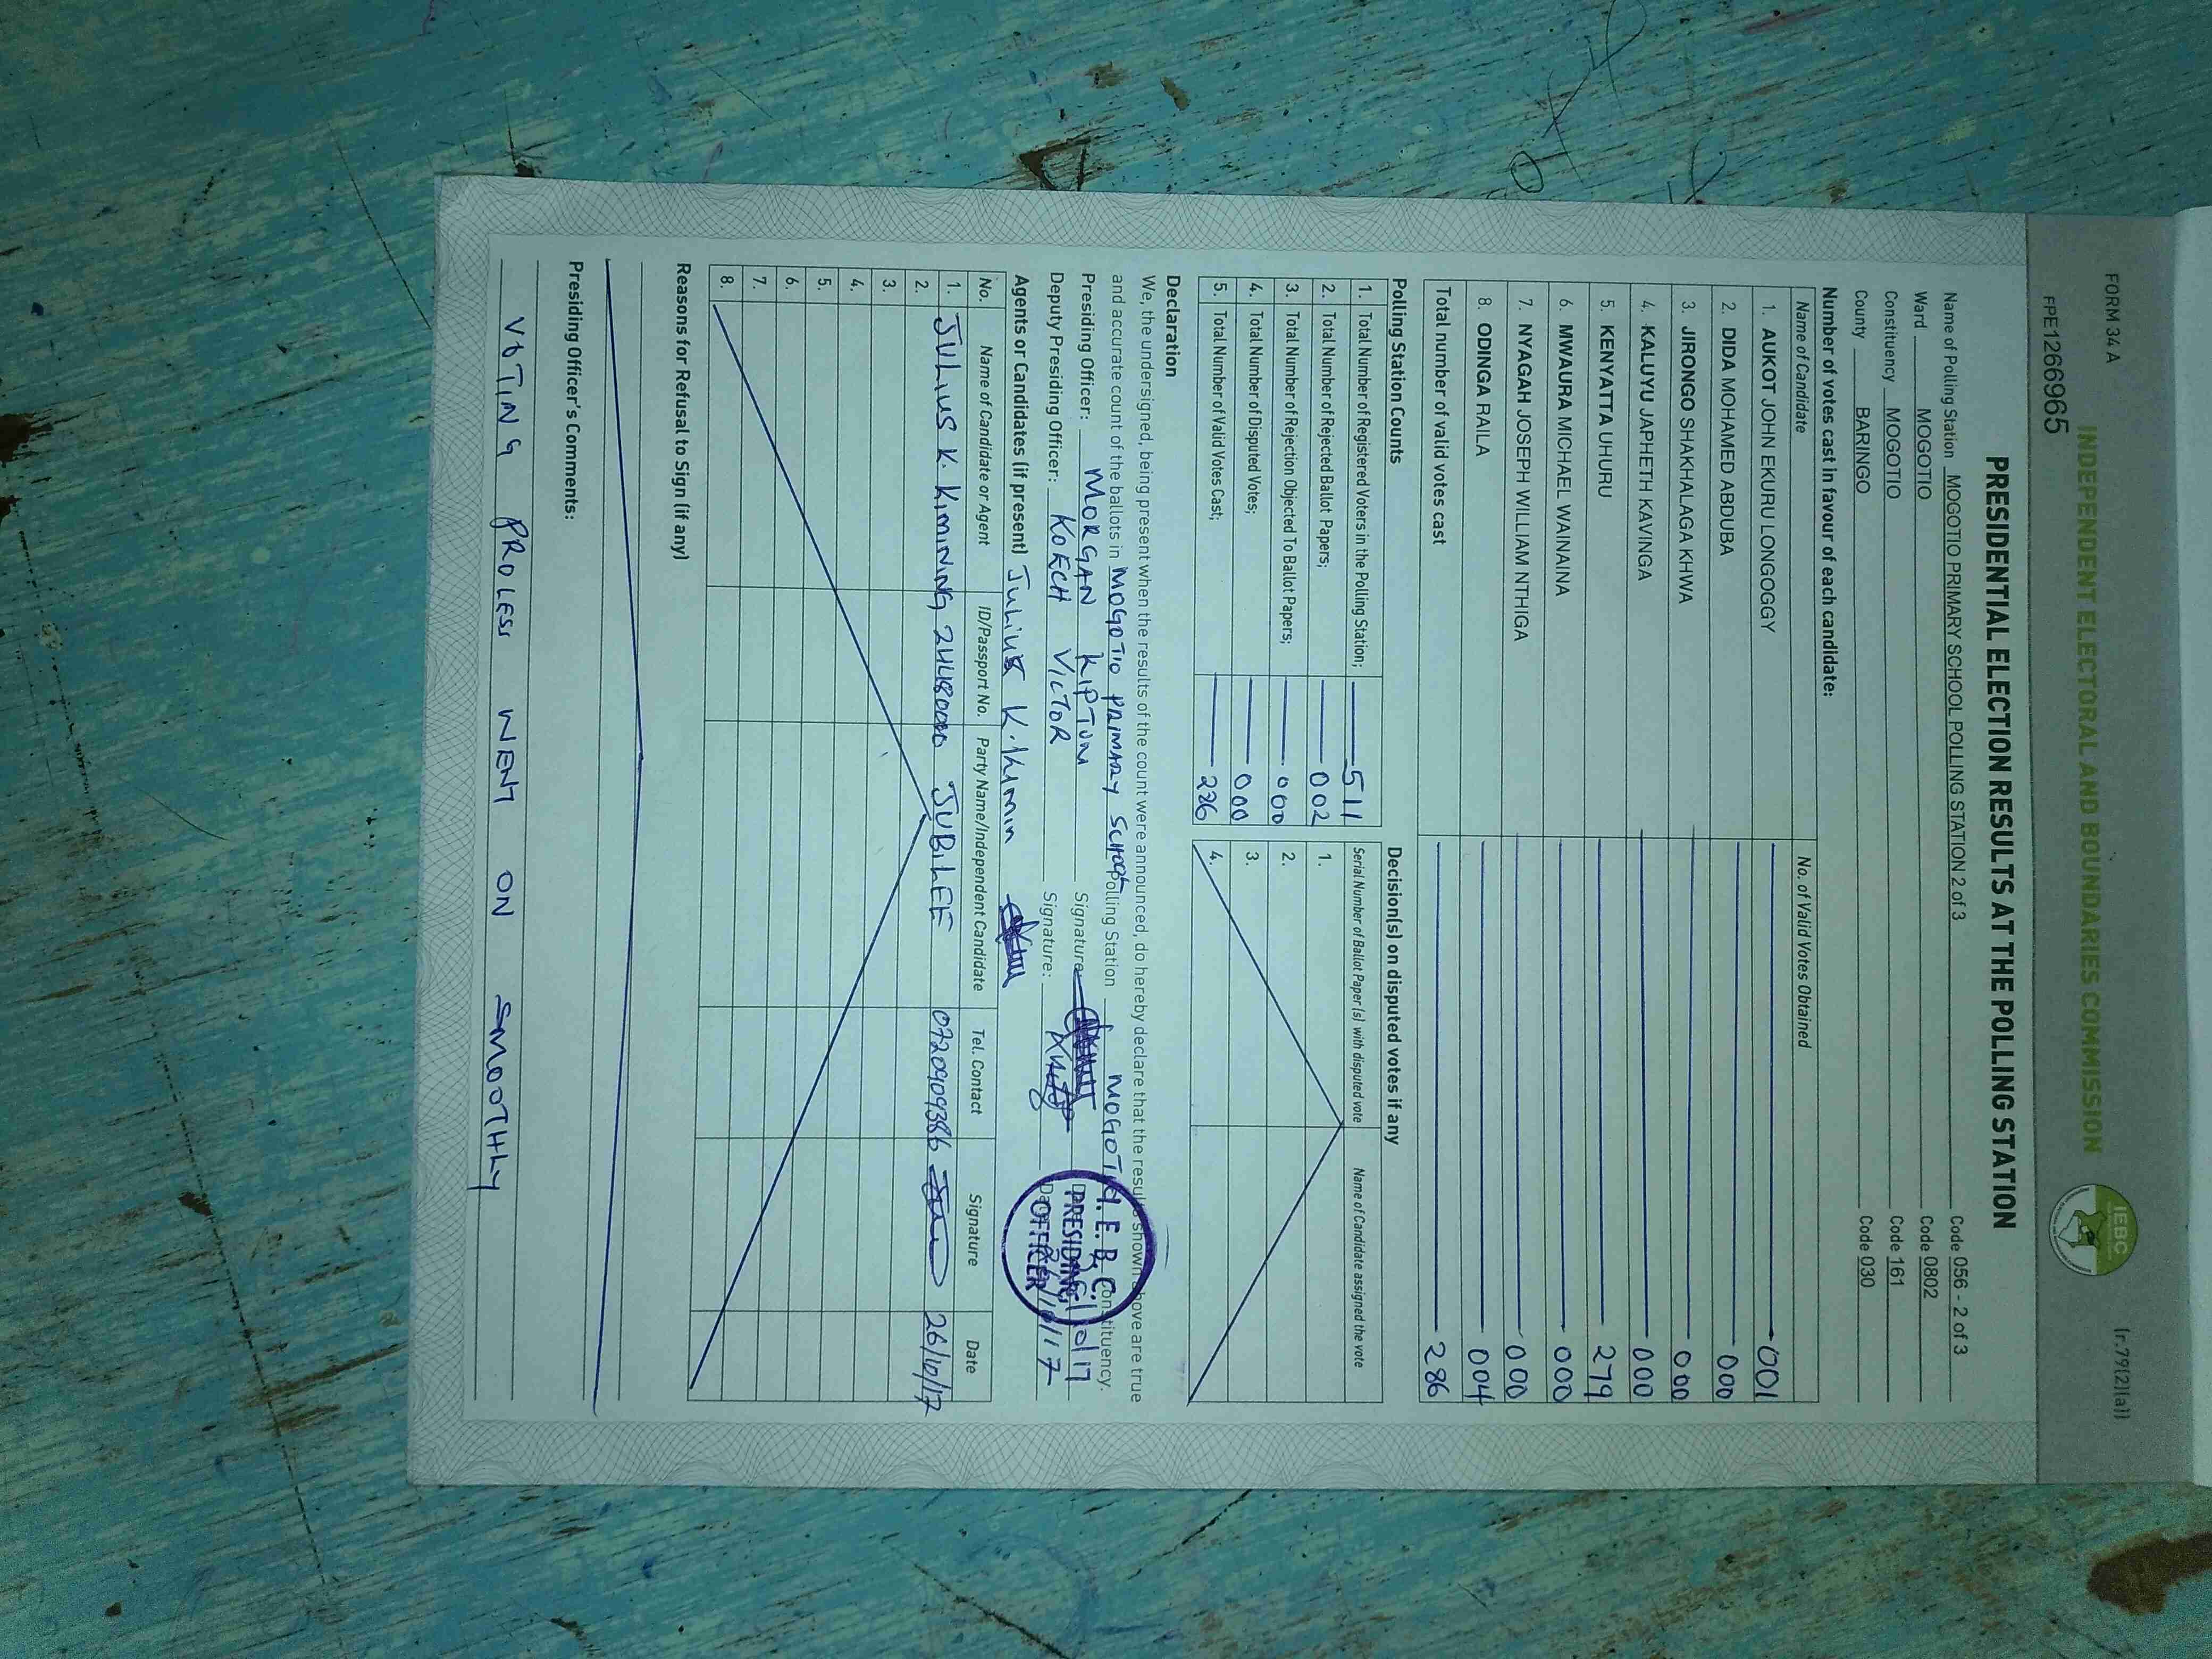 FORM 34 A
(r.79(2)(a))
INDEPENDENT ELECTORAL AND BOUNDARIES COMMISSION
IEBC
FPE1266965
PRESIDENTIAL ELECTION RESULTS AT THE POLLING STATION
Name of Polling Station MOGOTIO PRIMARY SCHOOL POLLING STATION 2 of 3 Code 056 - 2 of 3
Ward MOGOTIO Code 0802
Constituency MOGOTIO Code 161
County BARINGO Code 030
Number of votes cast in favour of each candidate:
Name of Candidate No. of Valid Votes Obtained
1. AUKOT JOHN EKURU LONGOGGY 001
2. DIDA MOHAMED ABDUBA 000
3. JIRONGO SHAKHALAGA KHWA 000
4. KALUYU JAPHETH KAVINGA 000
5. KENYATTA UHURU 279
6. MWAURA MICHAEL WAINAINA 000
7. NYAGAH JOSEPH WILLIAM NTHIGA 000
8. ODINGA RAILA 004
Total number of valid votes cast 286
Polling Station Counts
1. Total Number of Registered Voters in the Polling Station; 511
2. Total Number of Rejected Ballot Papers; 002
3. Total Number of Rejection Objected To Ballot Papers; 000
4. Total Number of Disputed Votes; 000
5. Total Number of Valid Votes Cast; 286
Decision(s) on disputed votes if any
Serial Number of Ballot Paper(s) with disputed vote Name of Candidate assigned the vote
1.
2.
3.
4.
Declaration
We, the undersigned, being present when the results of the count were announced, do hereby declare that the results shown above are true
and accurate count of the ballots in MOGOTIO PRIMARY SCHOOL Polling Station MOGOTIO Constituency.
Presiding Officer: MORGAN KIPTUM Signature:
Deputy Presiding Officer: KOECH VICTOR Signature:
I.E.B.C.
PRESIDING
OFFICER
Agents or Candidates (if present) Julius K.
No. Name of Candidate or Agent ID/Passport No. Party Name/Independent Candidate Tel. Contact Signature Date
1. JULIUS K. KIMINING JUBILEE 0720909386 26/10/17
2.
3.
4.
5.
6.
7.
8.
Reasons for Refusal to Sign (if any)
Presiding Officer's Comments:
VOTING PROLESS WENT ON SMOOTHLY